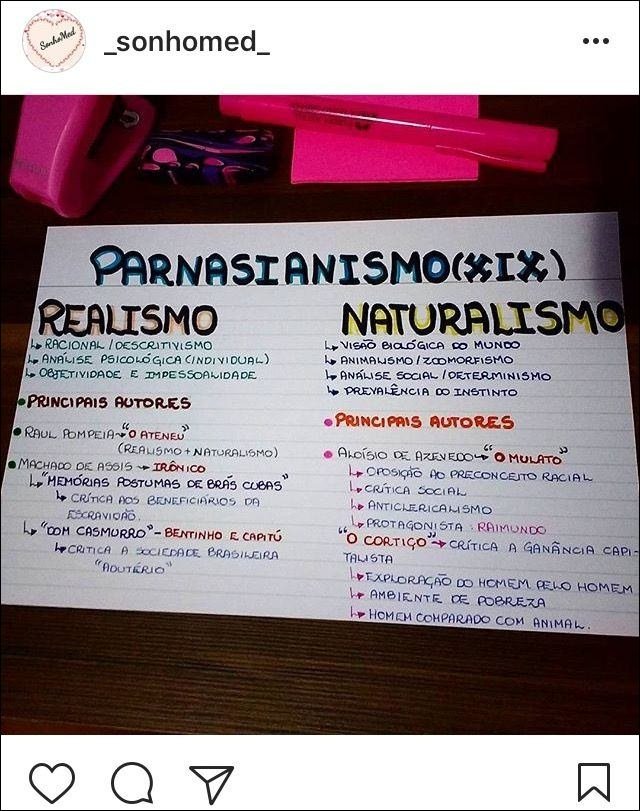 SonhoMed
_sonhomed_
PARNASIANISMO (XIX)
REALISMO
↳ RACIONAL / DESCRITIVISMO
↳ ANÁLISE PSICOLÓGICA (INDIVIDUAL)
↳ OBJETIVIDADE E IMPESSOALIDADE
• PRINCIPAIS AUTORES
• RAUL POMPEIA → "O ATENEU"
(REALISMO + NATURALISMO)
• MACHADO DE ASSIS → IRÔNICO
↳ "MEMÓRIAS POSTUMAS DE BRÁS CUBAS"
↳ CRÍTICA AOS BENEFICIÁRIOS DA
ESCRAVIDÃO.
↳ "DOM CASMURRO" - BENTINHO E CAPITÚ
↳ CRITICA A SOCIEDADE BRASILEIRA
"ADUTÉRIO"
NATURALISMO
↳ VISÃO BIOLÓGICA DO MUNDO
↳ ANIMALISMO / ZOOMORFISMO
↳ ANÁLISE SOCIAL / DETERMINISMO
↳ PREVALÊNCIA DO INSTINTO
• PRINCIPAIS AUTORES
• ALOÍSIO DE AZEVEDO → "O MULATO"
↳ OPOSIÇÃO AO PRECONCEITO RACIAL
↳ CRÍTICA SOCIAL
↳ ANTICLERICALISMO
↳ PROTAGONISTA: RAIMUNDO
"O CORTIÇO" → CRÍTICA A GANÂNCIA CAPI-
TALISTA
↳ EXPLORAÇÃO DO HOMEM PELO HOMEM
↳ AMBIENTE DE POBREZA
↳ HOMEM COMPARADO COM ANIMAL.